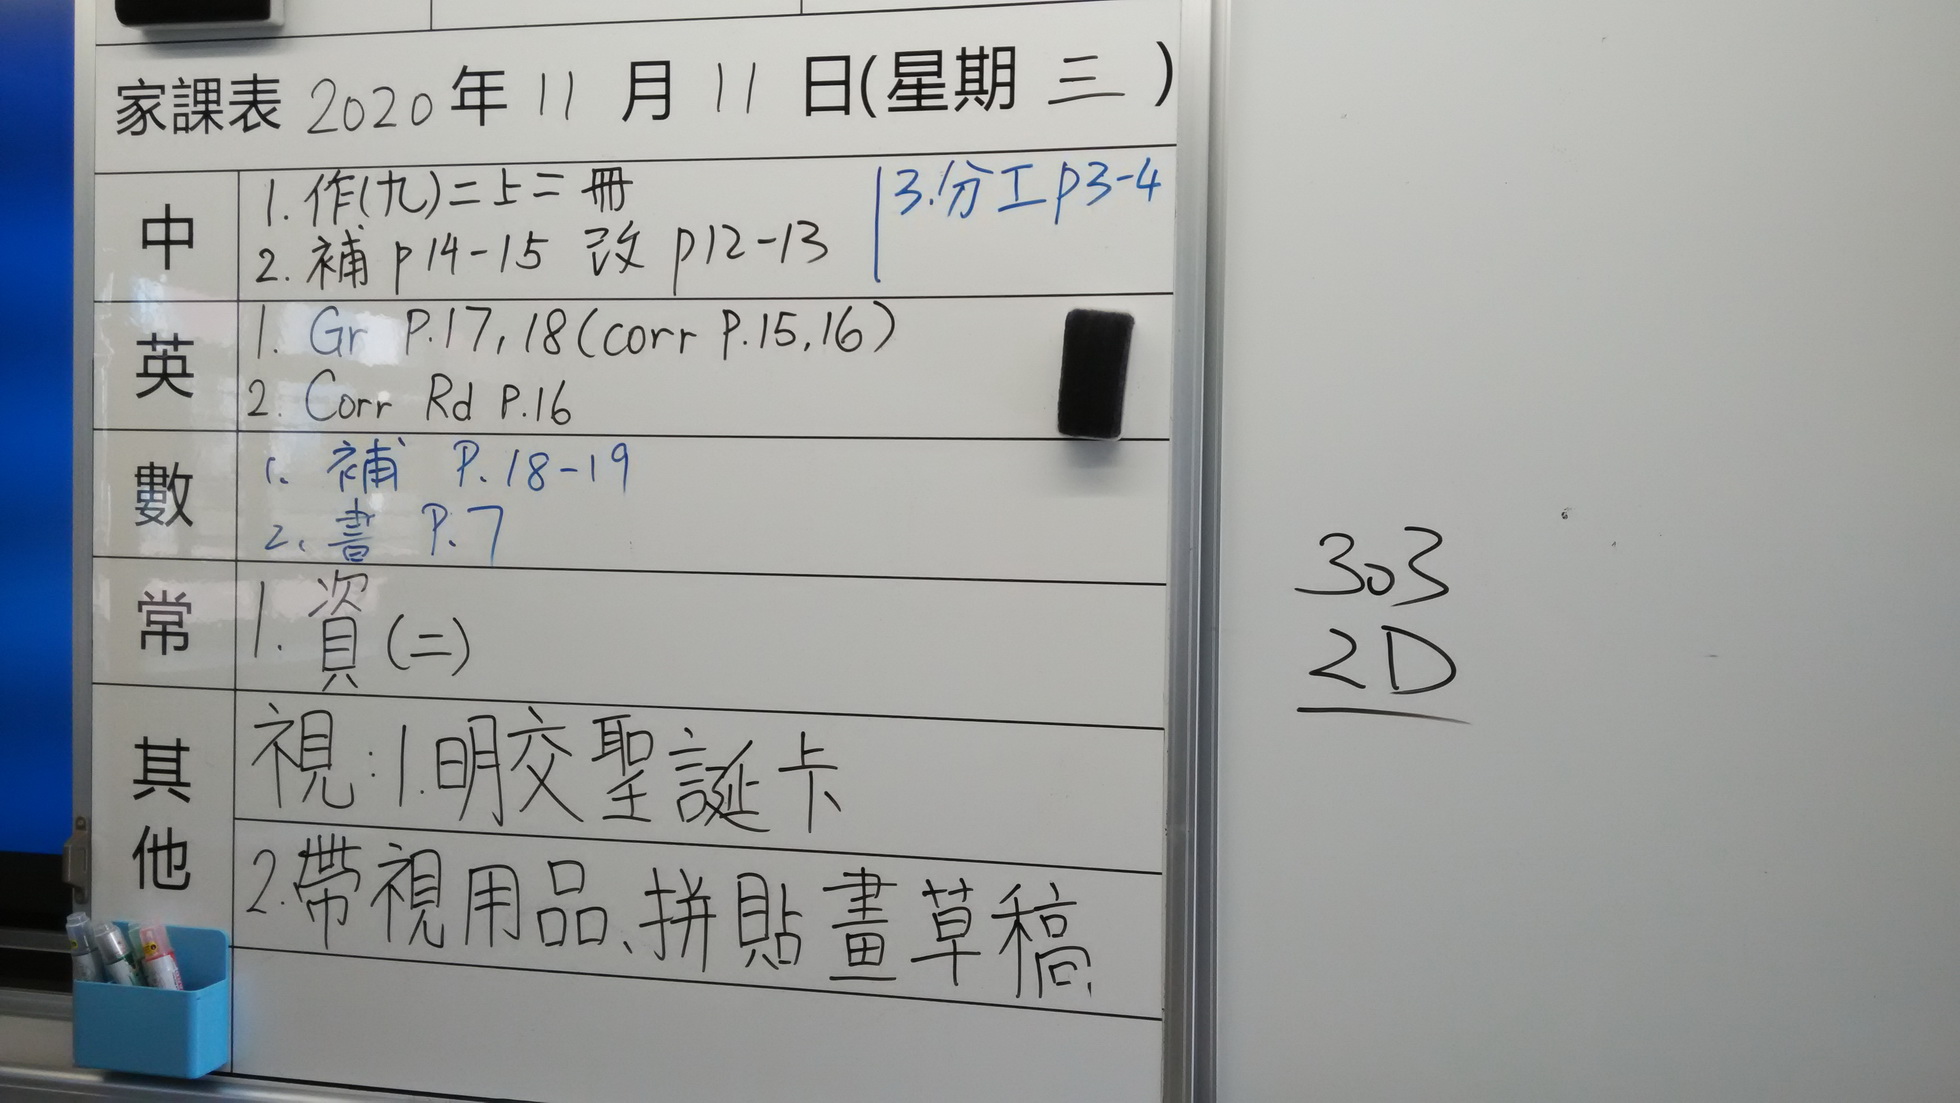 家課表 2020 年 11 月 11 日(星期 三 )
中
1. 作(九)二上二冊
2. 補 p14-15 改 p12-13
3.分工p3-4
英
1. Gr P.17,18(corr P.15,16)
2. Corr Rd P.16
數
1. 補 P.18-19
2. 書 P.7
常
1. 資(二)
其他
視:1.明交聖誕卡
2.帶視用品、拼貼畫草稿
303
2D